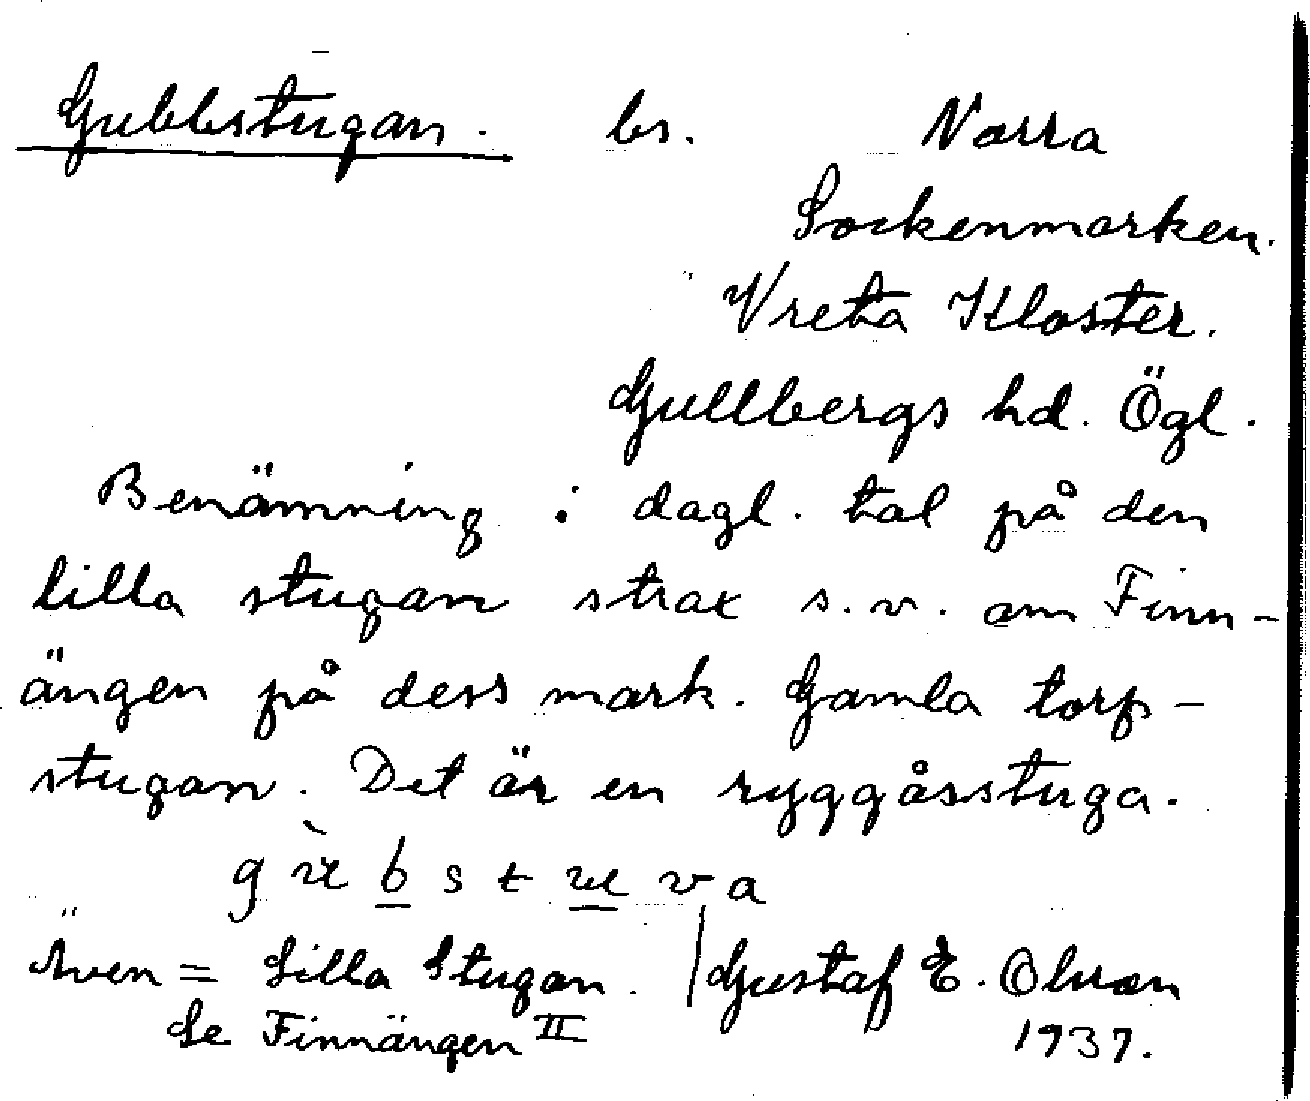 Gubbstugan. bs. Norra
Sockenmarken.
Vreta Kloster.
Gullbergs hd. Ögl.
Benämning i dagl. tal på den
lilla stugan strax s.v. om Finn-
ängen på dess mark. Gamla torp-
stugan. Det är en ryggåsstuga.
gùbstuva
Även = Lilla Stugan. | Gustaf E. Olsson
Se Finnängen II 1937.